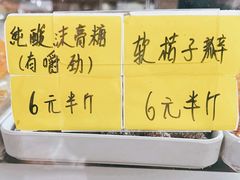 纯酸沫膏糖
(有嚼劲)
6元半斤
软桔子瓣
6元半斤